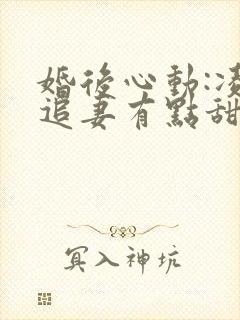 婚後心動:凌
追妻有點甜
冥入神坑